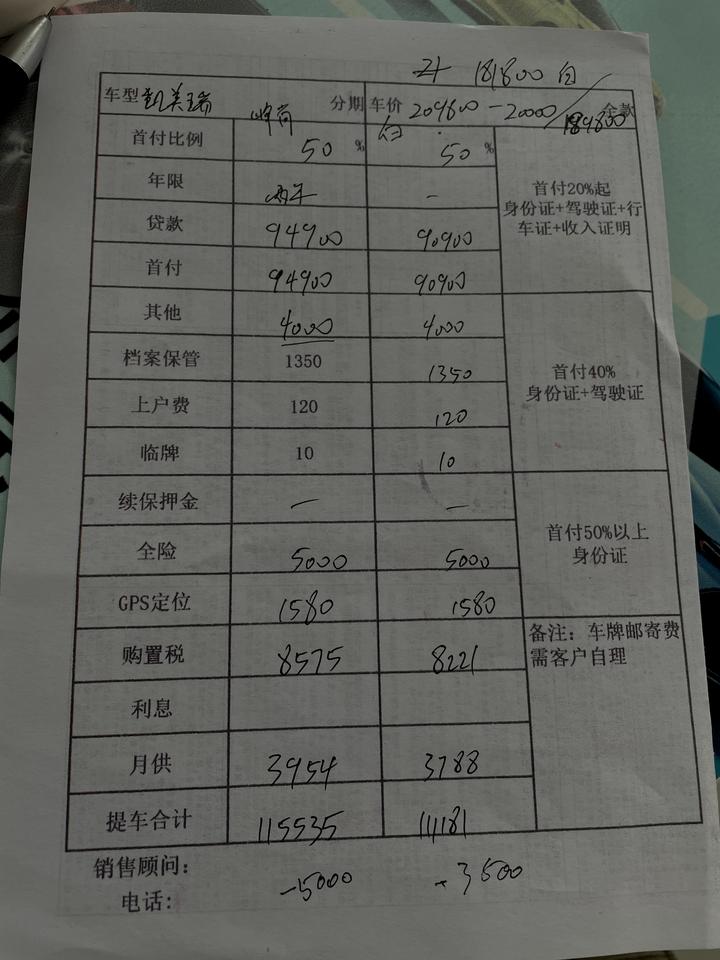 181800 白
车型 凯美瑞 分期 车价 209800 -20000 / 189800 全款
白
首付比例 50 % 50 %
首付20%起
身份证+驾驶证+行
车证+收入证明
年限 两年 —
贷款 94900 90900
首付 94900 90900
其他 4000 4000
首付40%
身份证+驾驶证
档案保管 1350 1350
上户费 120 120
临牌 10 10
续保押金 — —
首付50%以上
身份证
全险 5000 5000
GPS定位 1580 1580
备注：车牌邮寄费
需客户自理
购置税 8575 8221
利息
月供 3954 3788
提车合计 115535 111181
销售顾问： -5000 -3500
电话: